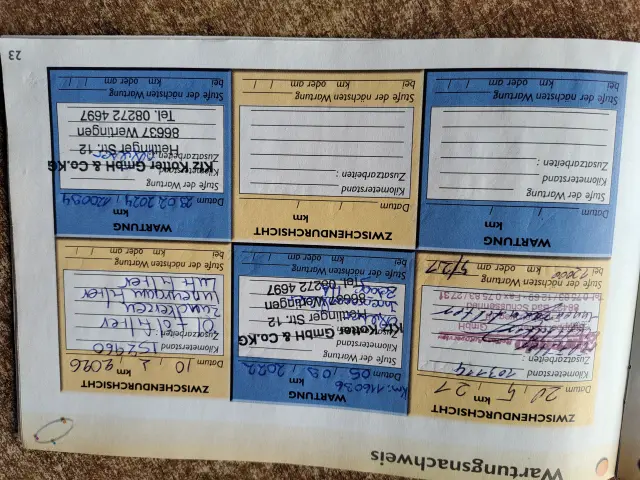 Wartungsnachweis
ZWISCHENDURCHSICHT
Datum 20, 5, 21 km
Kilometerstand
Zusatzarbeiten :
Stufe der nächsten Wartung
bei km oder am 5/22
WARTUNG
Datum 05, 03, 2022 km: 116036
Stufe der Wartung
Kilometerstand
Kfz Kotter GmbH & Co.KG
Hettlinger Str. 12
86637 Wertingen
Tel. 08272 4697
Stufe der nächsten Wartung
bei km oder am / /
ZWISCHENDURCHSICHT
Datum 10, 2, 2026 km
Kilometerstand 152460
Zusatzarbeiten :
Ölfilter
Zündkerzen
Innenraumfilter
Luftfilter
Stufe der nächsten Wartung
bei km oder am / /
WARTUNG
Datum / / km
Stufe der Wartung
Kilometerstand
Zusatzarbeiten :
Stufe der nächsten Wartung
bei km oder am / /
ZWISCHENDURCHSICHT
Datum / / km
Kilometerstand
Zusatzarbeiten :
Stufe der nächsten Wartung
bei km oder am / /
WARTUNG
Datum 23.02.2024, 120094 km
Stufe der Wartung
Kilometerstand
Kfz Kotter GmbH & Co.KG
Zusatzarbeiten :
Hettlinger Str. 12
86637 Wertingen
Tel. 08272 4697
Stufe der nächsten Wartung
bei km oder am / /
23